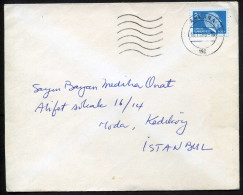 Sayın Bayan Mediha Onat
Alifet sokak 16/14
Moda, Kadıköy
İSTANBUL